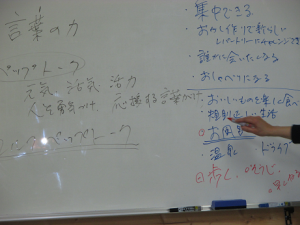 言葉の力
ペップトーク
元気 活気 活力
人を勇気づけ 応援する言葉がけ
ペップトーク
・集中できる
・おかし作りで新らしい
レパートリーにチャレンジする
・誰かに会いたいなる
・おしゃべりになる
・おいしいものを楽しく食べ
・規則正しい生活
・温泉 ドライブ
歩く、そうじ、